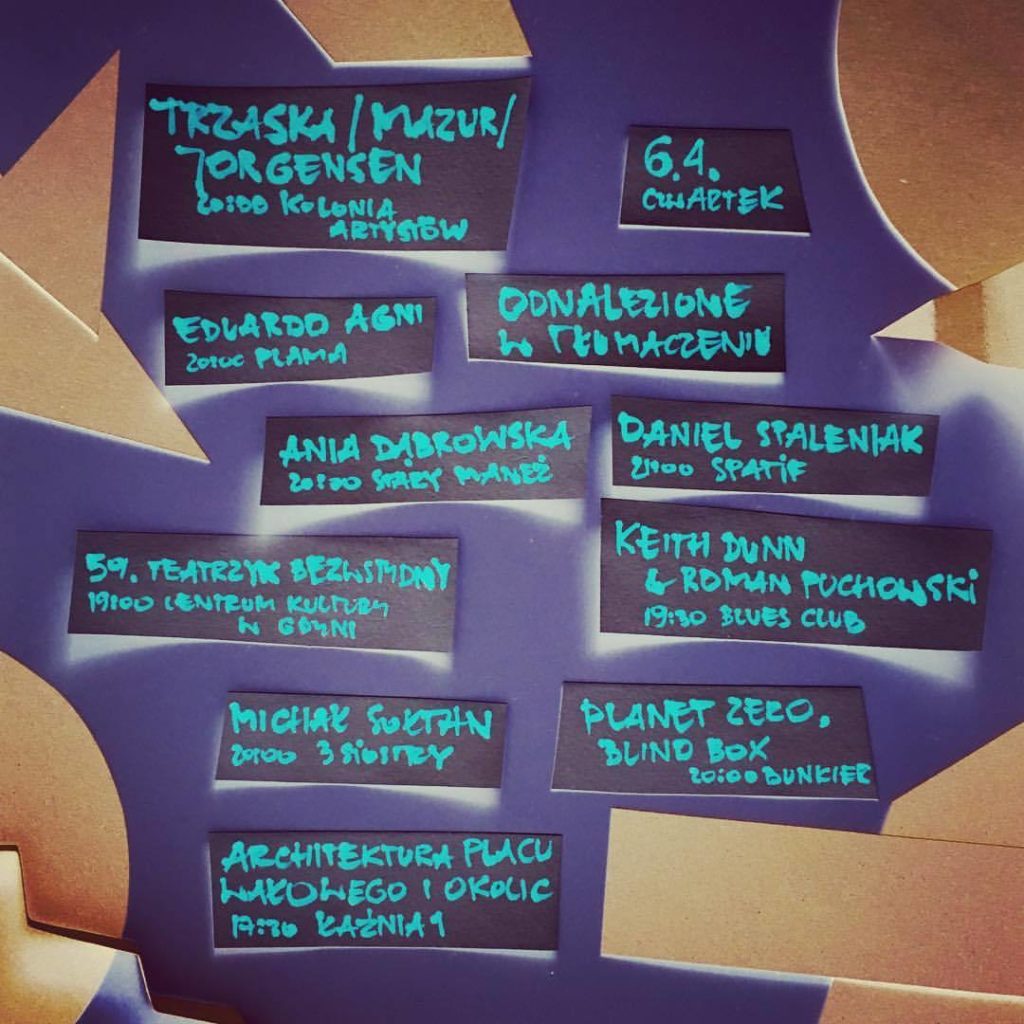 TRZASKA / MAZUR /
JORGENSEN
20:00 KOLONIA
ARTYSTÓW
6.4.
CZWARTEK
EDUARDO AGNI
20:00 PLAMA
ODNALEZIONE
W TŁUMACZENIU
ANIA DĄBROWSKA
20:00 STARY MANEŻ
DANIEL SPALENIAK
21:00 SPATiF
59. TEATRZYK BEZWSTYDNY
19:00 CENTRUM KULTURY
W GDYNI
KEITH DUNN
& ROMAN PUCHOWSKi
19:30 BLUES CLUB
MICHAŁ SOŁTAN
20:00 3 SiOSTRY
PLANET ZERO,
BLIND BOX
20:00 BUNKIER
ARCHITEKTURA PLACU
WAŁOWEGO I OKOLIC
17:30 ŁAŹNIA 1